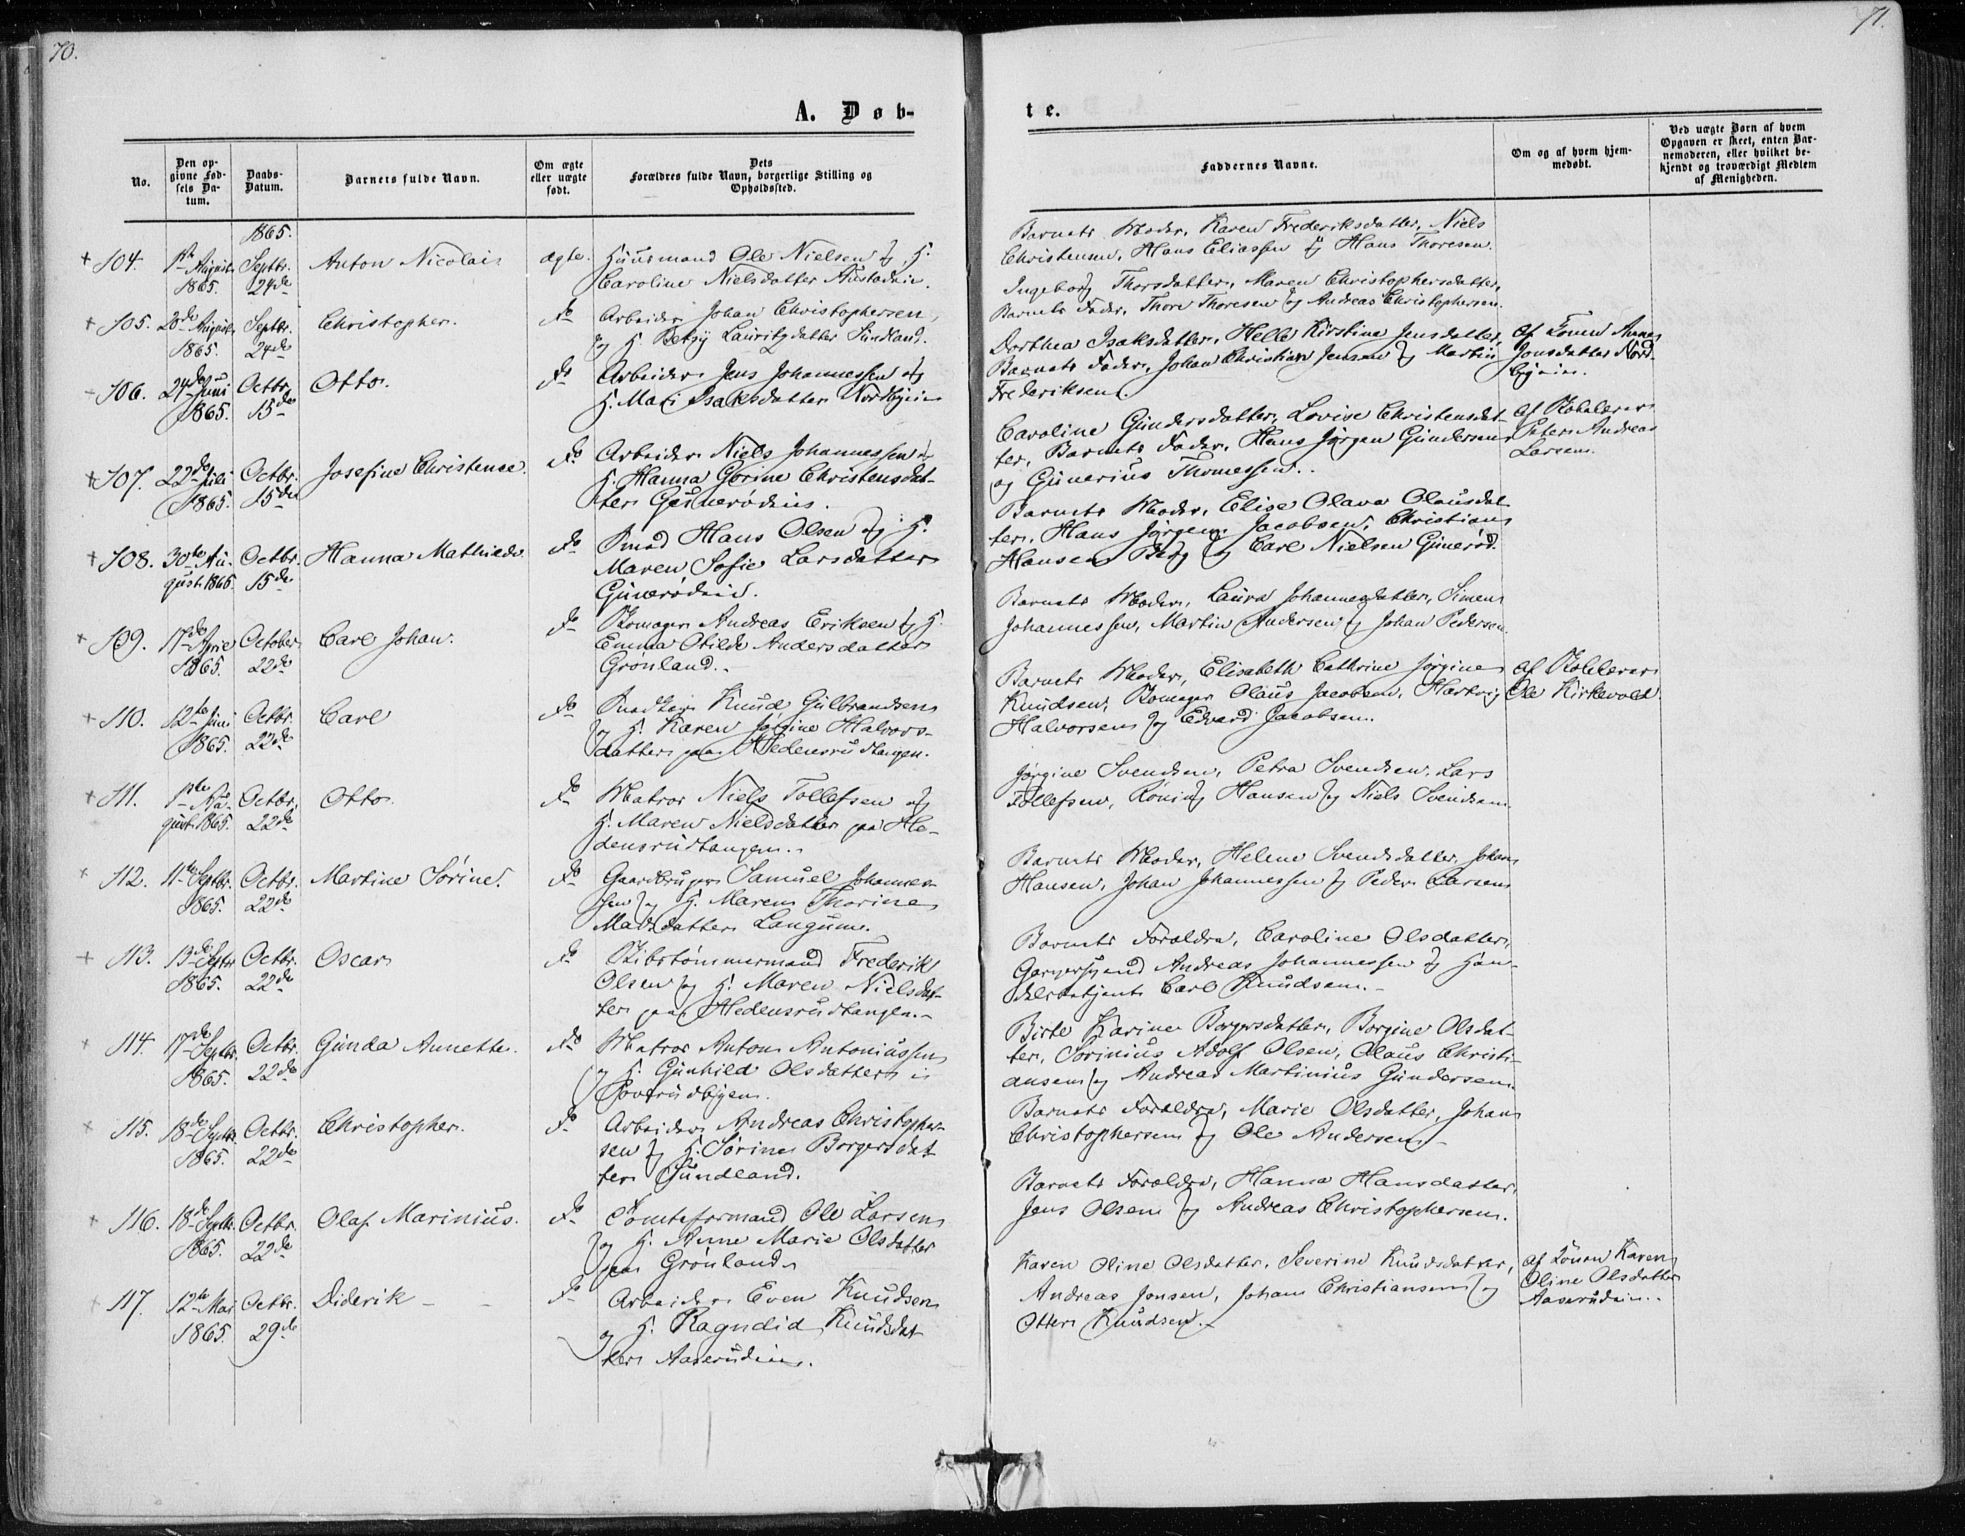 70.
A. Døb-
No.
Den op-
givne Fød-
sels Da-
tum.
Daabs-
Datum.
Barnets fulde Navn.
Om ægte
eller uægte
født.
Dets
Forældres fulde Navn, borgerlige Stilling og
Opholdssted.
1865.
+ 104. 1ste August 1865. Septbr. 24de Anton Nicolai ægte. Huusmand Ole Nielsen og H.
Caroline Nielsdatter
+ 105. 28de August 1865. Septbr. 24de Christopher. do Arbeider Johan Christophersen,
og H. Betsy Lauritzdatter Sundland.
106. 24de Juni 1865. Octbr. 15de Otto. do Arbeider Jens Johannessen og
H. Mari Isaksdatter Nordbyeie
+ 107. 22de Juli 1865. Octbr. 15de Josefine Christense. do Arbeider Niels Johannessen og
H. Hanna Gorine Christensdat-
ter Gunerødeie.
+ 108. 30te Au-
gust 1865. Octbr. 15de Hanna Mathilde do Smed Hans Olsen og H.
Maren Sofie Larsdatter
Gunerødeie.
+ 109. 17de April 1865. October 22de Carl Johan. do Skomager Andreas Eriksen og H.
Emma Otilde Andersdatter
Grønland.
+ 110. 12te Juni 1865. Octbr. 22de Carl do Knud Gulbrandsen
og H. Karen Jørgine Halvors-
datter paa Hedensrudtangen.
+ 111. 1ste Au-
gust 1865. Octbr. 22de Otto do Matros Niels Tollefsen og
H. Maren Nielsdatter paa He-
densrudtangen.
112. 11te Septbr. 1865. Octbr. 22de Martine Sørine. do Gaardbruger Samuel Johannes-
sen og H. Maren Thorine
Madsdatter Langum.
+ 113. 13de Septbr 1865. Octbr. 22de Oscar do Skibstømmermand Frederik
Olsen og H. Maren Nielsdat-
ter paa Hedensrudtangen.
+ 114. 17de Septbr. 1865. Octbr. 22de Gunda Annette. do Matros Anton Antoniussen
og H. Gunhild Olsdatter i
115. 18de Septbr. 1865. Octbr. 22de Christopher. do Arbeider Andreas Christopher-
sen og H. Sørine Borgersdat-
ter Sundland.
116. 18de Septbr. 1865. Octbr. 22de Olaf Marinius. do Tomteformand Ole Larsen
og H. Anne Marie Olsdatter
paa Grønland
117. 12te Mai 1865. Octbr. 29de Diderik do Arbeider Even Knudsen
og H. Ragndid Knudsdat-
ter Aaserudeie.
71.
te.
Faddernes Navne.
Om og af hvem hjem-
medøbt.
Ved uægte Børn af hvem
Opgaven er skeet, enten Bar-
nemoderen, eller hvilket be-
kjendt og troværdigt Medlem
af Menigheden.
Barnets Moder, Karen Frederiksdatter, Niels
Christensen, Hans Eliassen og Hans Thoresen.
Ingeborg Thorsdatter, Maren Christophersdatter,
Barnets Fader, Thore Thoresen og Andreas Christophersen.
Dorthea Isaksdatter, Helle Kirstine Jensdatter, af Konen Anne
Barnets Fader, Johan Christian Jensen og Martin Jonsdatter Nord-
Frederiksen. byeie.
Caroline Gundersdatter, Lovise Christensdat- af Skolelærer
ter, Barnets Fader, Hans Jørgen Gundersen Peter Andreas
og Gunerius Thomessen. Larsen.
Barnets Moder, Elise Olava Olausdat-
ter, Hans Jørgen Jacobsen, Christian
Hansen Berg og Carl Nielsen Gunerød.
Barnets Moder, Laura Johannesdatter, Simen
Johannessen, Martin Andersen og Johan Pedersen.
Barnets Moder, Elisabeth Cathrine Jørgine af Skolelærer
Knudsen, Skomager Olaus Jacobsen, Hartvig Ole Kirkevold
Halvorsen og Edvard Jacobsen.
Jørgine Svendsen, Petra Svendsen, Lars
Tollefsen, Rønnig Hansen og Niels Svendsen
Barnets Moder, Helene Svendsdatter, Johan
Hansen, Johan Johannessen og Peder Larsen
Barnets Forældre, Caroline Olsdatter,
Garversvend Andreas Johannessen og Han-
delsbetjent Carl Knudsen.
Birte Karine Borgersdatter, Borgine Olsdat-
ter, Sorinius Adolf Olsen, Olaus Christi-
ansen og Andreas Martinius Gundersen.
Barnets Forældre, Marie Olsdatter, Johan
Christophersen og Ole Andersen
Barnets Forældre, Hanna Hansdatter,
Jens Olsen og Andreas Christophersen.
Karen Oline Olsdatter, Severine Knudsdatter, af Konen Karen
Andreas Jonsen, Johan Christiansen og Oline Olsdatter
Otter Knudsen. Aaserudeie.